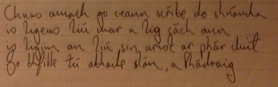 Chuas amach go ceann scríbe do shrámha
is ligeas liú mar a lig cách ann
is ligim an liú sin arnot ar phár duit
go bhfille tú abhaile slán, a Phádraig